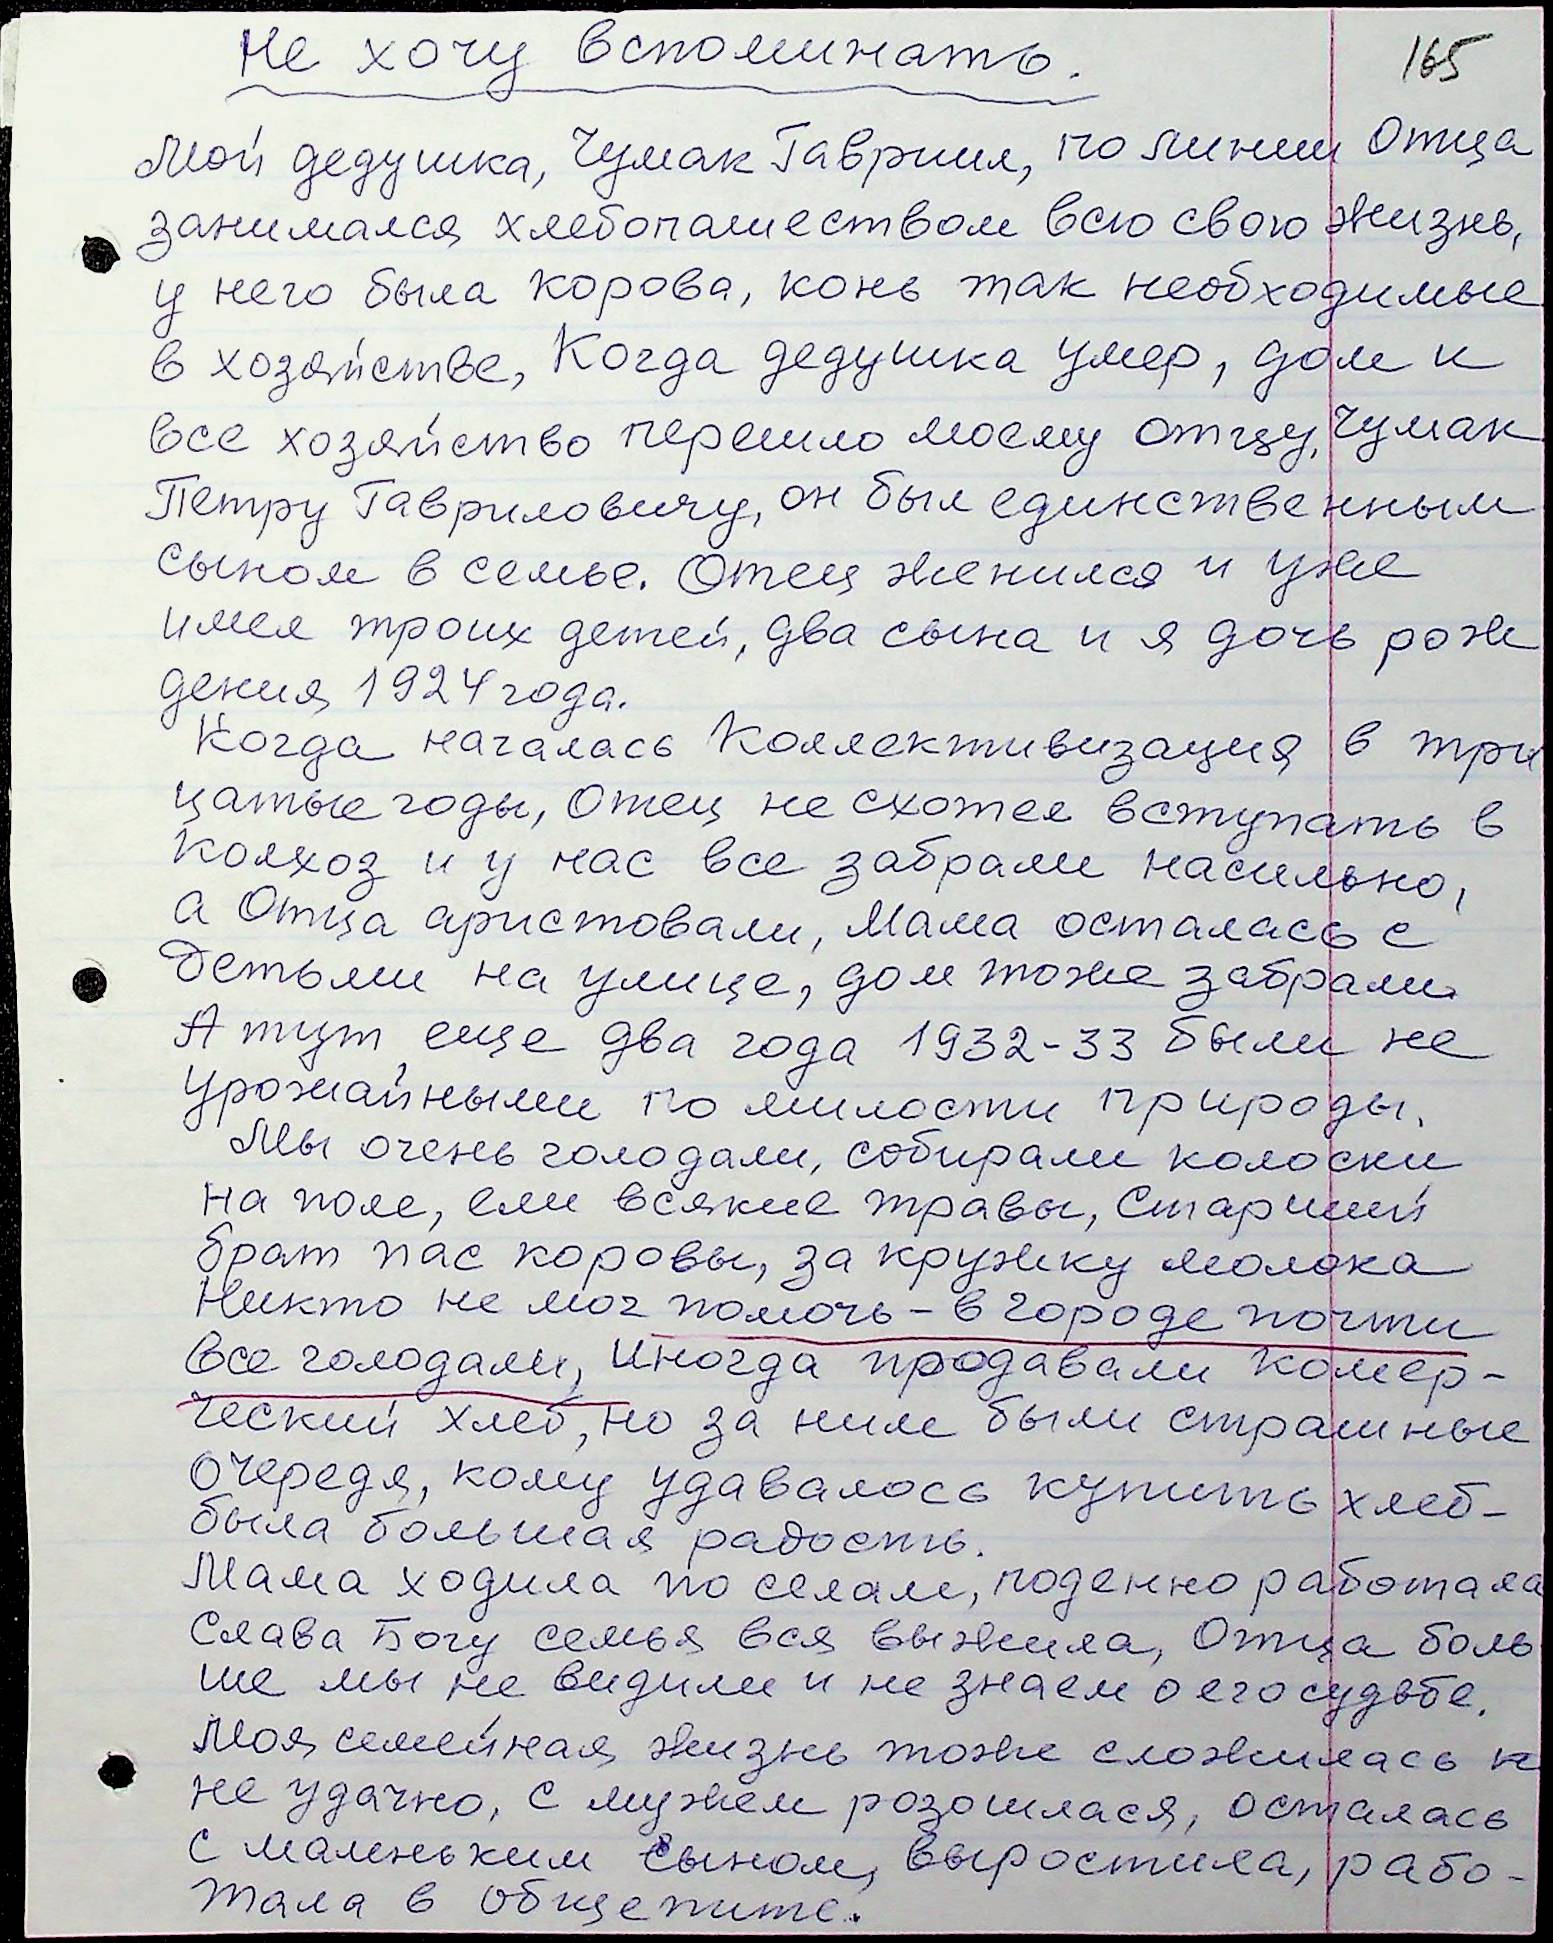 Не хочу вспоминать.
165
Мой дедушка, Чумак Гавриил, по линии Отца
занимался хлебопашеством всю свою жизнь,
у него была корова, конь так необходимые
в хозяйстве, Когда дедушка умер, дом и
все хозяйство перешло моему отцу, Чумак
Петру Гавриловичу, он был единственным
сыном в семье. Отец женился и уже
имел троих детей, два сына и я дочь рож
дения 1924 года.
Когда началась Коллективизация в три
цатые годы, Отец не схотел вступать в
Колхоз и у нас все забрали насильно,
а Отца аристовали, Мама осталась с
Детьми на улице, дом тоже забрали.
А тут еще два года 1932-33 были не
урожайными по милости природы.
Мы очень голодали, собирали колоски
на поле, ели всякие травы, Старший
брат пас коровы, за кружку молока
Никто не мог помочь - в городе почти
все голодали, Иногда продавали комер-
ческий хлеб, но за ним были страшные
очередя, кому удавалось купить хлеб-
была большая радость.
Мама ходила по селам, поденно работала
Слава Богу семья вся выжила, Отца боль
ше мы не видили и не знаем о его судьбе.
Моя семейная жизнь тоже сложилась н
не удачно, с мужем розошлася, осталась
с маленьким сыном, выростила, рабо-
тала в общепите.